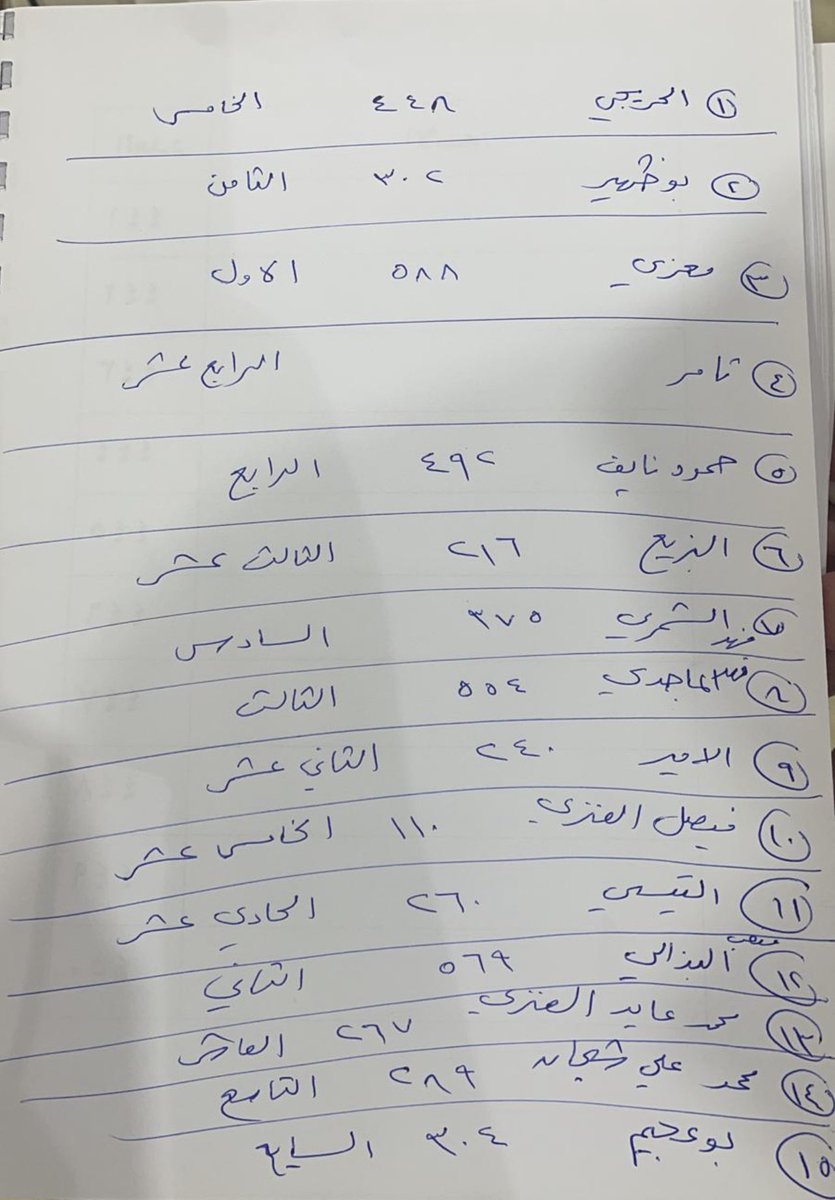 ١ الحريجي ٤٤٨ الخامس
٢ بوظهير ٣٠٢ الثامن
٣ معزي ٥٨٨ الاول
٤ ثامر الرابع عشر
٥ حمود نايف ٤٩٢ الرابع
٦ البزيع ٢١٦ الثالث عشر
٧ فهد الشمري ٣٧٥ السادس
٨ الماجدي ٥٥٤ الثالث
٩ الامير ٢٤٠ الثاني عشر
١٠ فيصل العنزي ١١٠ الخامس عشر
١١ القيسي ٢٦٠ الحادي عشر
١٢ البذالي ٥٦٩ الثاني
١٣ محمد عايد العنزي ٢٦٧ العاشر
١٤ محمد علي شعبان ٢٨٩ التاسع
١٥ بوعجيم ٣٠٤ السابع